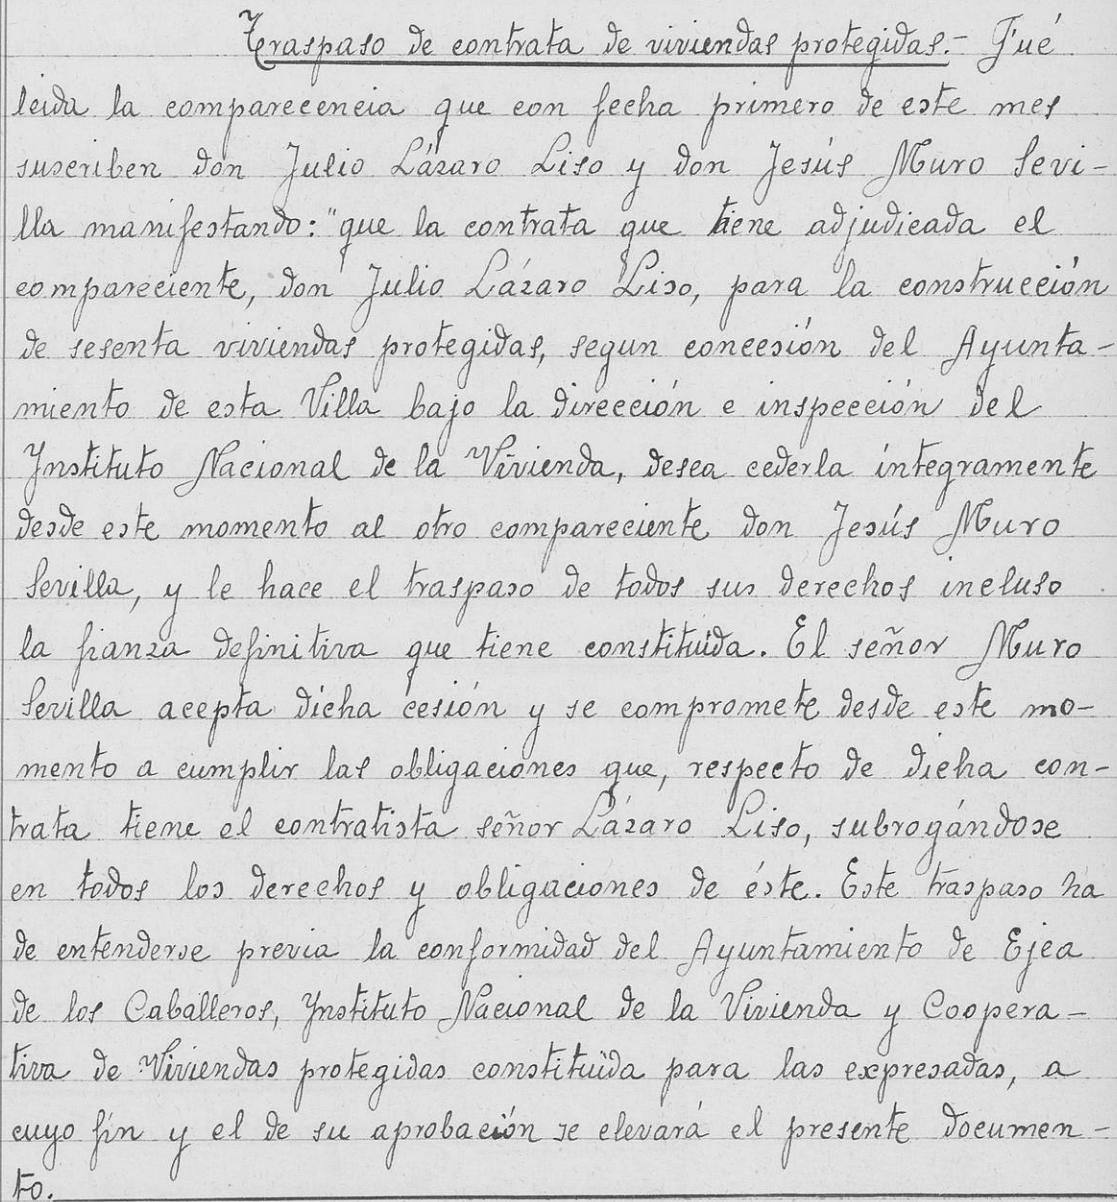 Traspaso de contrata de viviendas protegidas.- Fué
leida la comparecencia que con fecha primero de este mes
suscriben don Julio Lázaro Liso y don Jesús Muro Sevi-
lla manifestando: "que la contrata que tiene adjudicada el
compareciente, don Julio Lázaro Liso, para la construcción
de sesenta viviendas protegidas, segun concesión del Ayunta-
miento de esta Villa bajo la dirección e inspección del
Instituto Nacional de la Vivienda, desea cederla íntegramente
desde este momento al otro compareciente don Jesús Muro
Sevilla, y le hace el traspaso de todos sus derechos incluso
la fianza definitiva que tiene constituída. El señor Muro
Sevilla acepta dicha cesión y se compromete desde este mo-
mento a cumplir las obligaciones que, respecto de dicha con-
trata tiene el contratista señor Lázaro Liso, subrogándose
en todos los derechos y obligaciones de éste. Este traspaso ha
de entenderse previa la conformidad del Ayuntamiento de Ejea
de los Caballeros, Instituto Nacional de la Vivienda y Coopera-
tiva de Viviendas protegidas constituïda para las expresadas, a
cuyo fín y el de su aprobación se elevará el presente documen-
to.